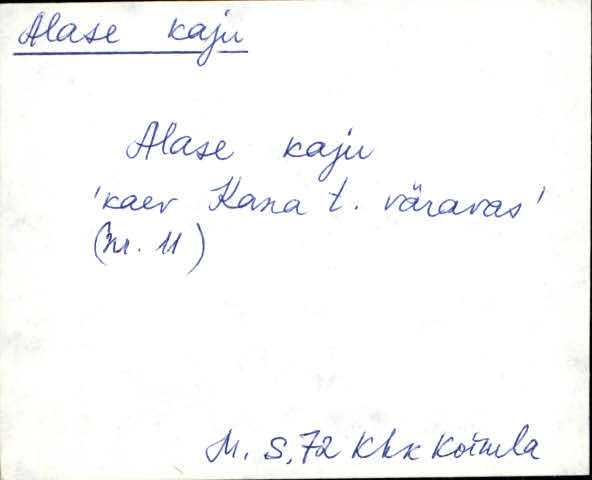 Alase kaju
Alase kaju
'kaev Kasa t. väravas'
(Nr. 11)
M. S, 72 Khk Kõimla